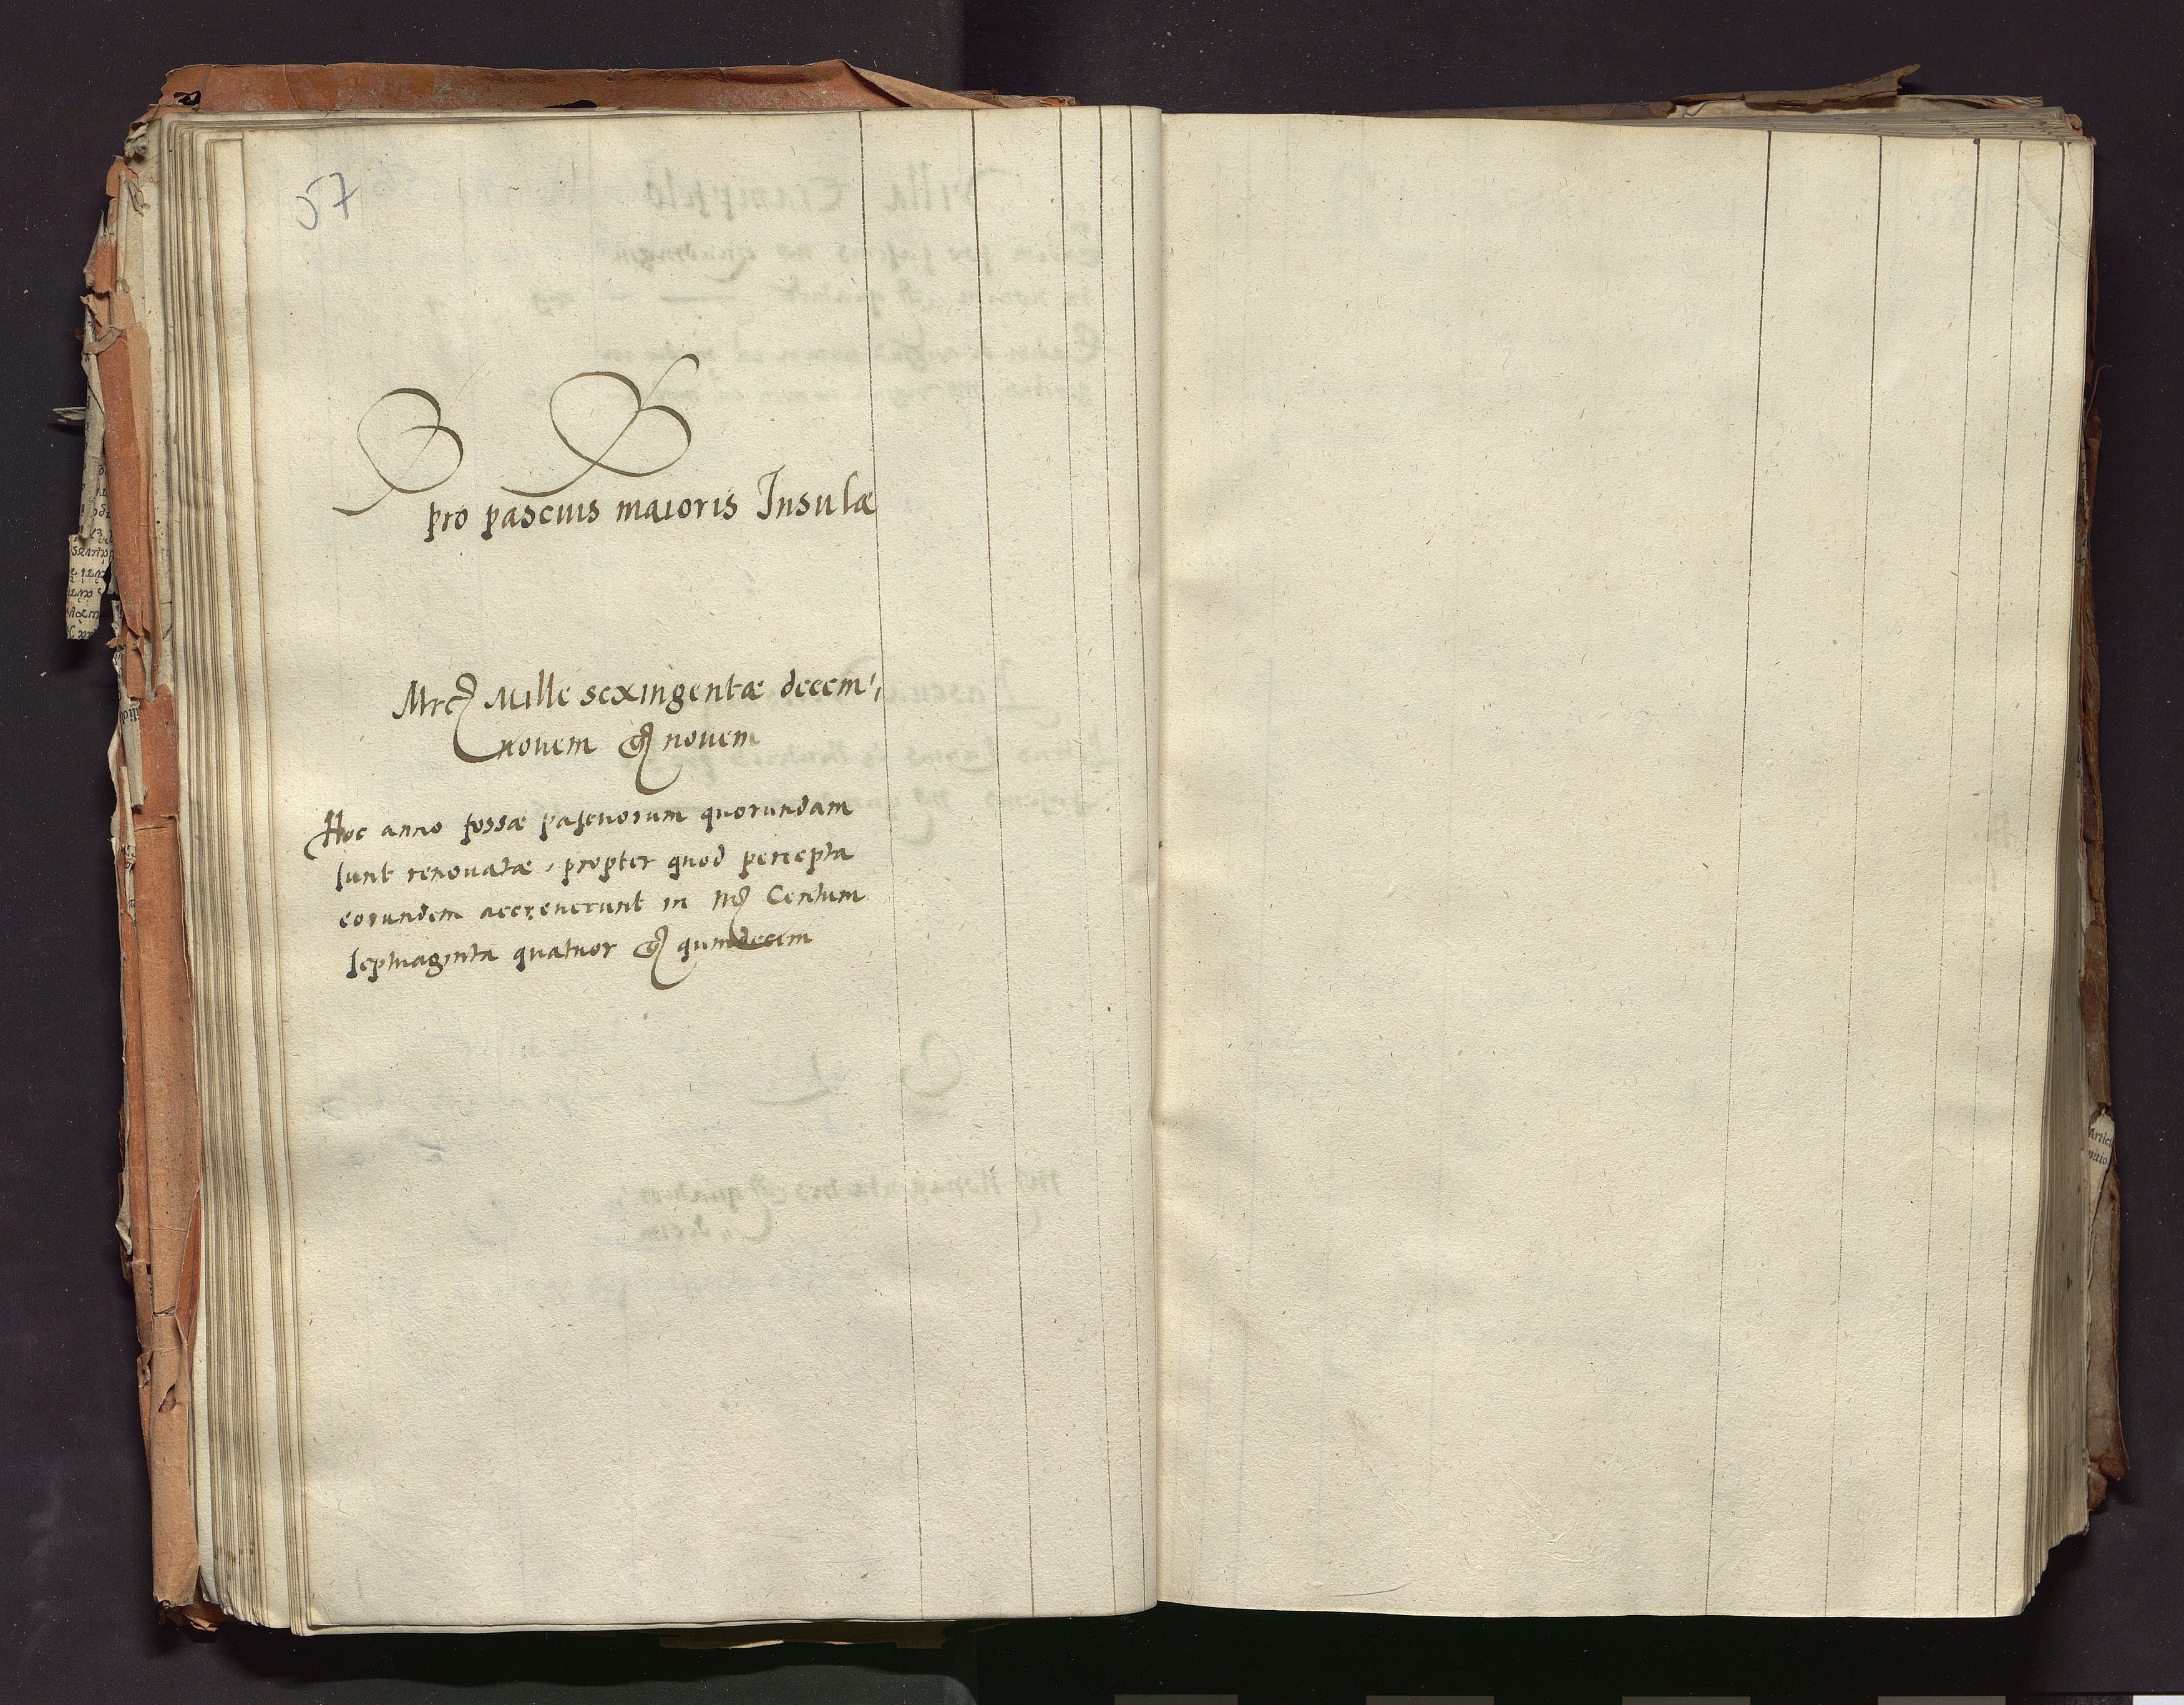 57
pro pascuis maioris Insulæ
Mrc Mille sexingentæ decem,
novem & novem
Hoc anno fossæ pascuorum quorundam
sunt renouatæ, propter quod percepta
eorundem accreuerunt in Mr Centum
septuaginta quatuor & quindecim